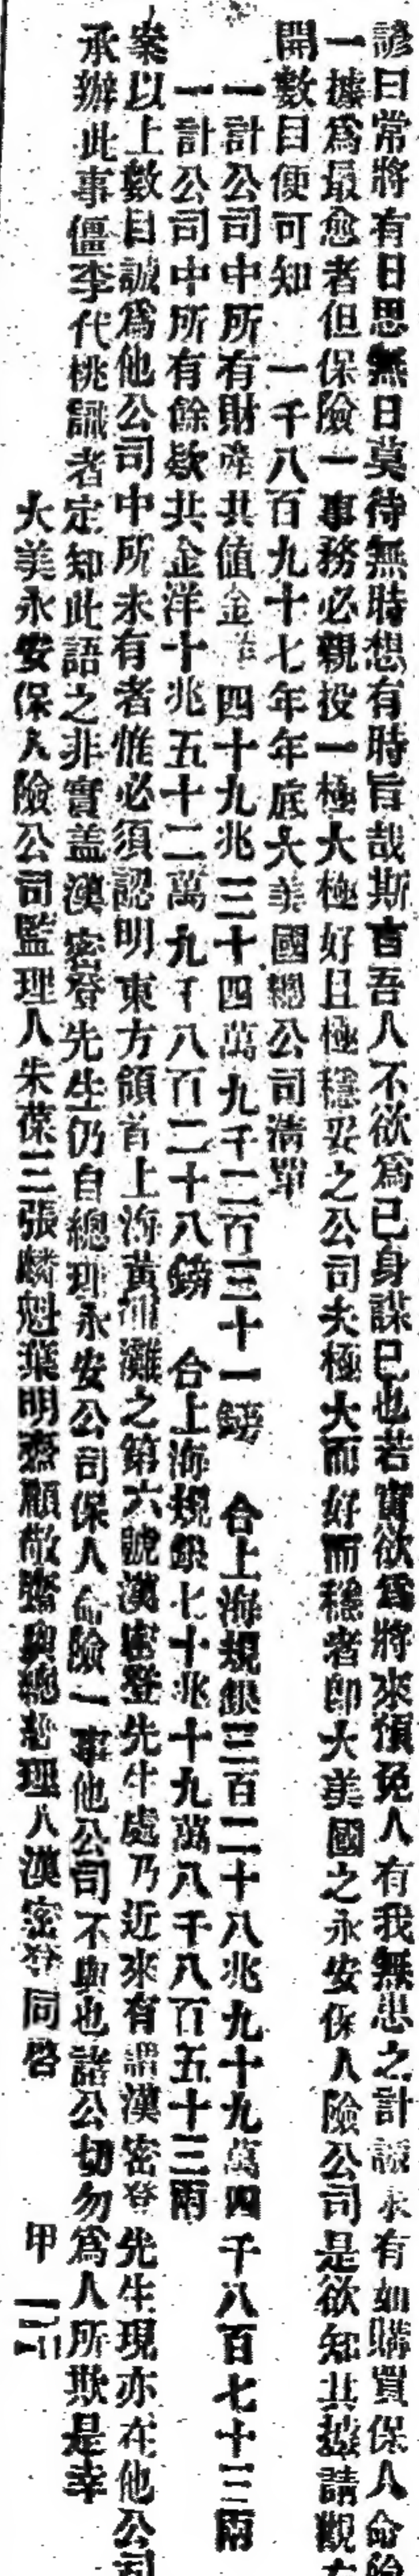 諺曰常將有日思無日莫待無時想有時旨哉斯言吾人不欲爲已身謀已也若實欲爲將來預免人有我無悲之計誠未有如購買保人命險
一據爲最愈者但保險一事務必親投一極大極好且極穩妥之公司夫極大而好而穩者即大美國之永安保人險公司是欲知其據請觀左
開數目便可知 一千八百九十七年年底大美國總公司清單
一計公司中所有財產共值金洋四十九兆三十四萬九千二百三十一鎊 合上海規銀三百二十八兆九十九萬四千八百七十三兩
一計公司中所有餘欵共金洋十兆五十二萬九千八百二十八鎊 合上海規銀七十兆十九萬八千八百五十三兩
案以上數目誠爲他公司中所未有者惟必須認明東方領首上海黃浦灘之第六號漢密登先生處乃近來有謂漢密登先生現亦在他公司
承辦此事僵李代桃識者定知此語之非實蓋漢密登先生仍自總理永安公司保人命險一事他公司不與也諸公切勿爲人所欺是幸
大美永安保人險公司監理人朱葆三張麟魁葉明齋顧敬齋與總理人漢密登同啓 甲